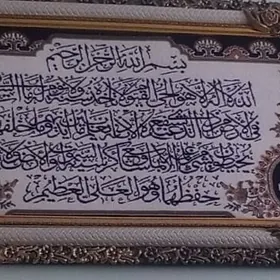 بسم الله الرحمن الرحيم
الله لا إله إلا هو الحي القيوم لا تأخذه سنة ولا نوم له ما في
في الأرض من ذا الذي يشفع عنده إلا بإذنه يعلم ما بين أيديهم وما خلفهم
يحيطون بشيء من علمه إلا بما شاء وسع كرسيه السموات والأرض ولا
حفظهما وهو العلي العظيم